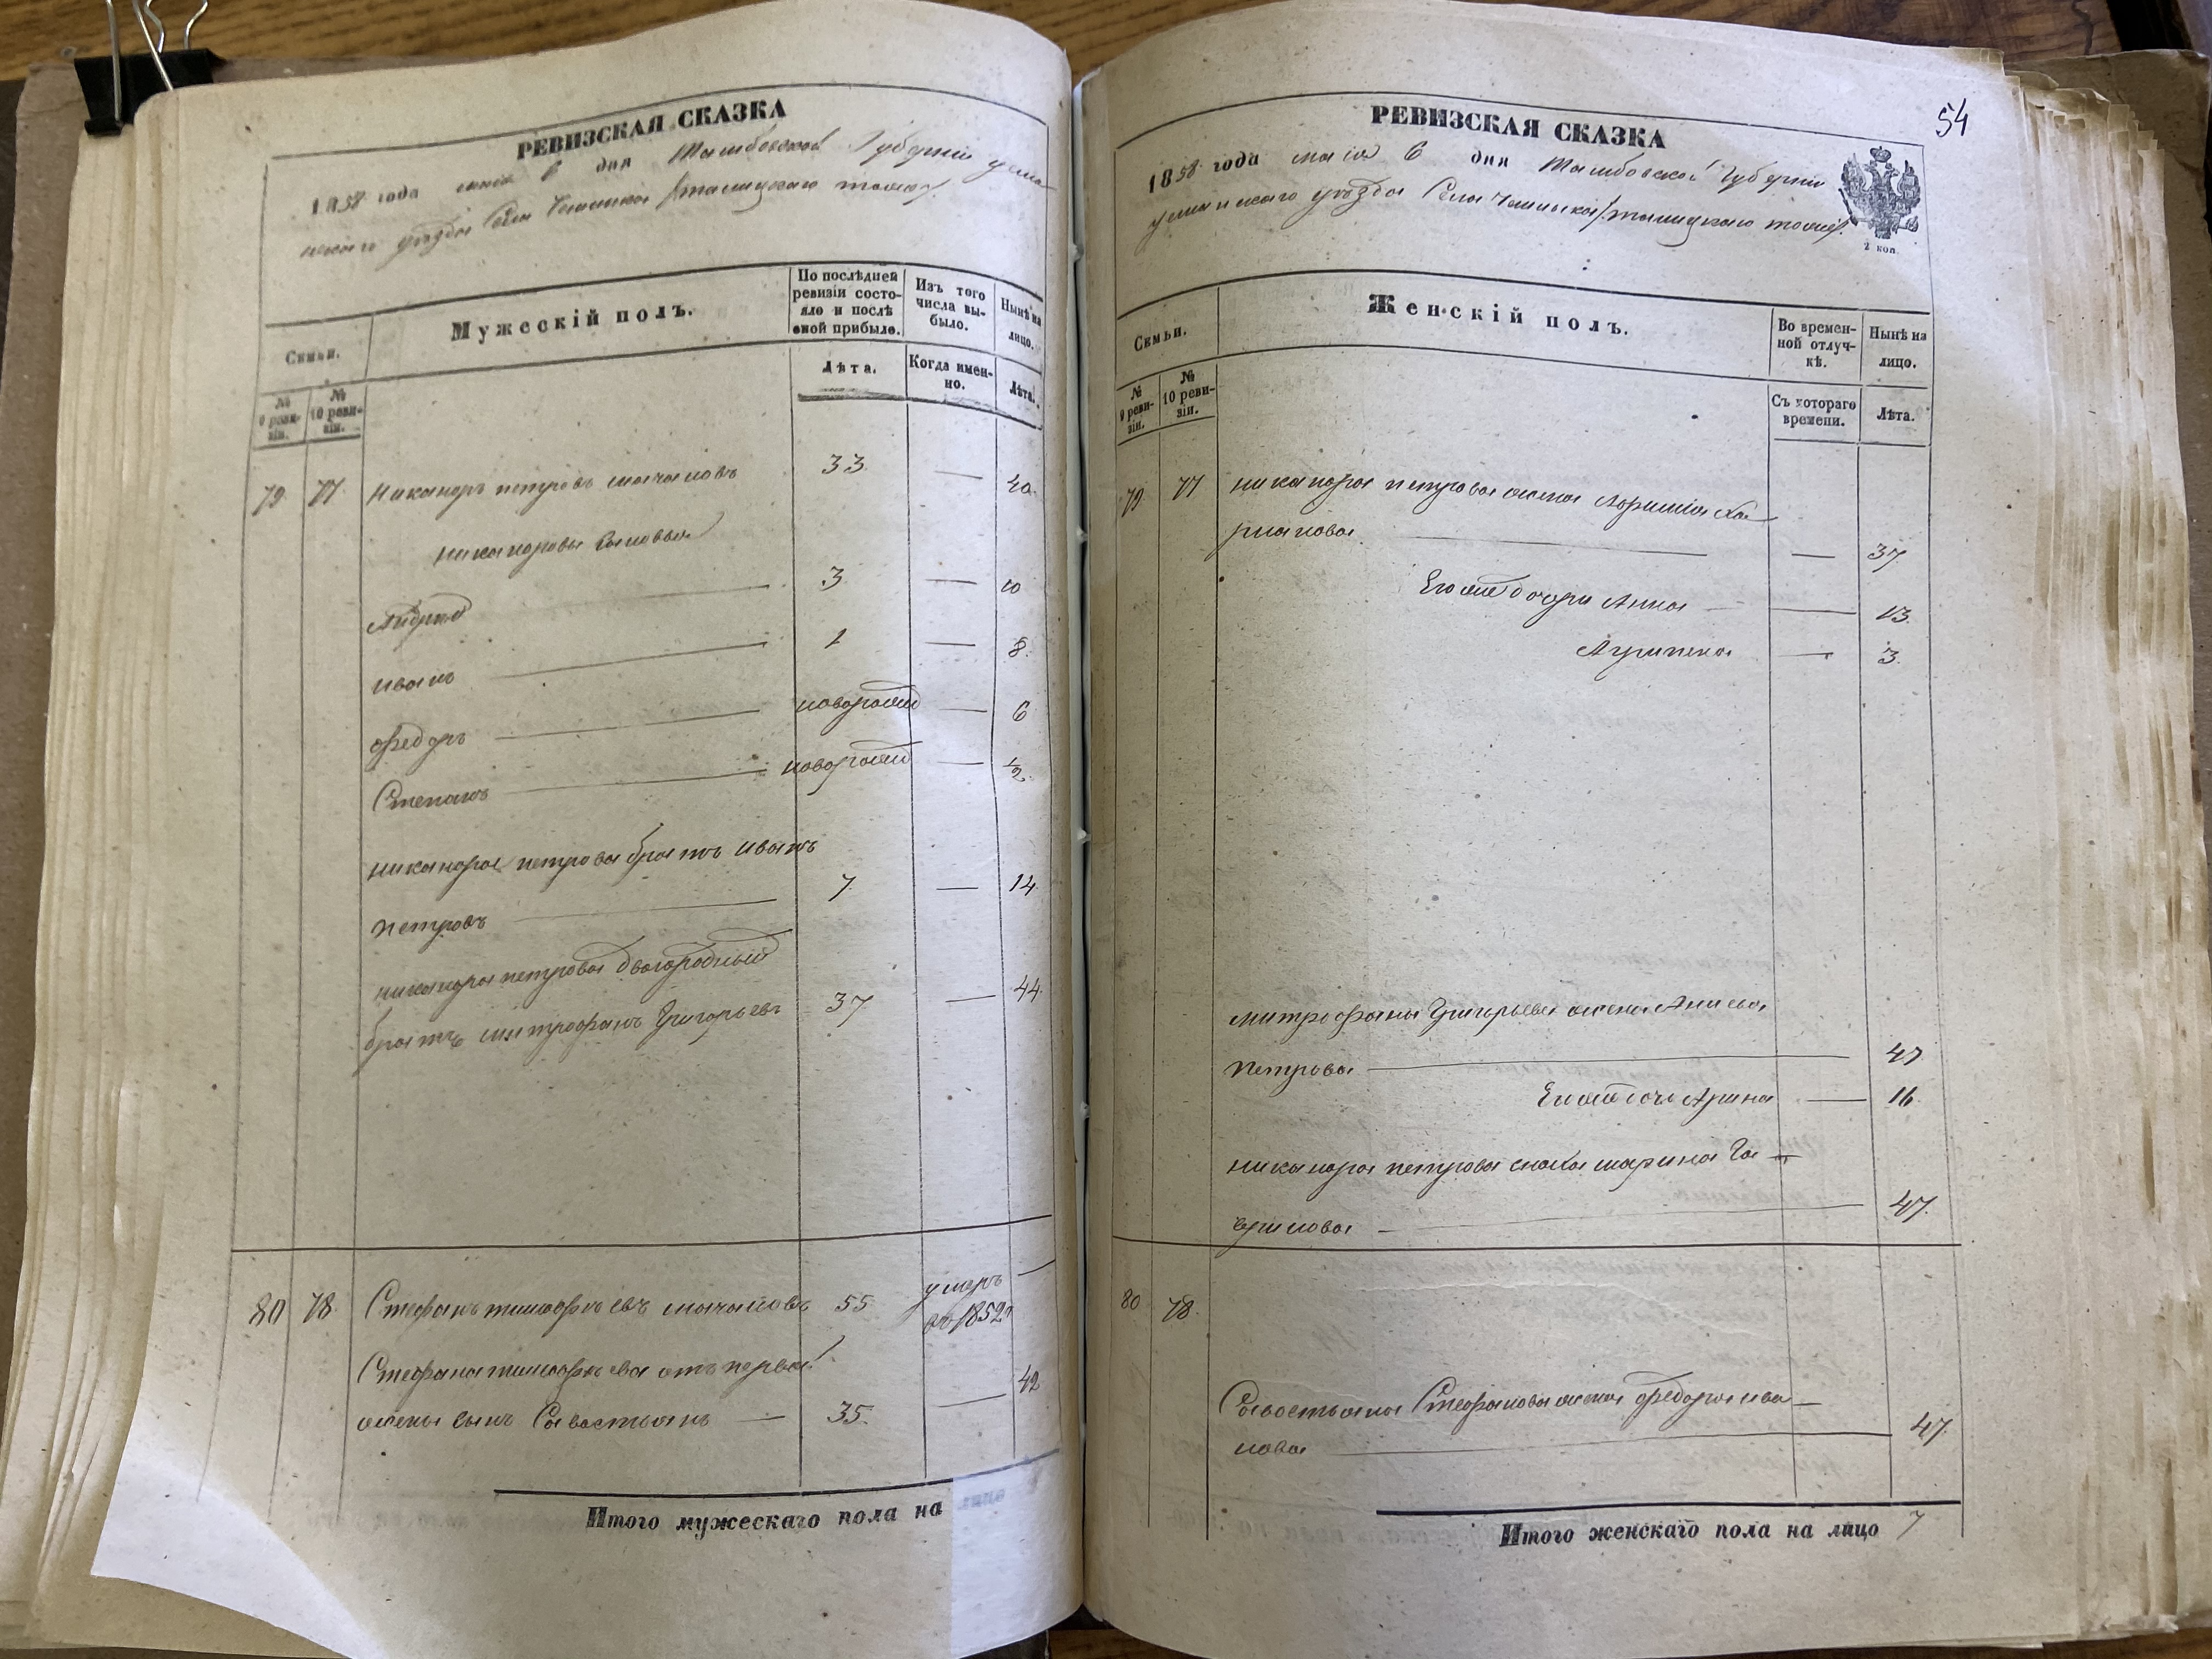 РЕВИЗСКАЯ СКАЗКА
1858 года мая 6 дня Тамбовской Губернии усма
нскаго уѣзда Села
Семьи.
Мужескій полъ.
По послѣдней ревизіи состояло и послѣ оной прибыло.
Изъ того числа выбыло.
Нынѣ на лицо.
№ 9 ревизіи.
№ 10 ревизіи.
Лѣта.
Когда именно.
Лѣта.
79 77 Никаноръ петровъ мачановъ 33 — 40
никаноровы Сыновья
Андрей — 3 — 10
иванъ — 1 — 8
федоръ —новорожд — 6
Степанъ — новорожд — 1/2
никанора петрова братъ иванъ
петровъ — 7 — 14
никанора петрова двоюродный
братъ митрофанъ Григорьевъ 37 — 44
80 78 Стефанъ тимофѣевъ мачановъ 55 умеръ въ 1852 —
Стефана тимофѣева отъ первой
жены сынъ Савостьянъ — 35 — 42
Итого мужескаго пола на
54
РЕВИЗСКАЯ СКАЗКА
1858 года маія 6 дня Тамбовской Губерніи
усманскаго уѣзда Села
2 коп.
Семьи.
Женскій полъ.
Во временной отлучкѣ.
Нынѣ на лицо.
№ 9 ревизіи.
№ 10 ревизіи.
Съ котораго времени.
Лѣта.
79 77 никанора петрова жена
— — 37
Его же дочери Анна — — 13
Агрипена — 3
митрофана Григорьева жена
Петрова — 47
Его же дочь Арина — 16
никанора петрова сноха марина
— 47
80 78
Савостьяна Стефанова жена федора ива
нова — 47
Итого женскаго пола на лицо 7